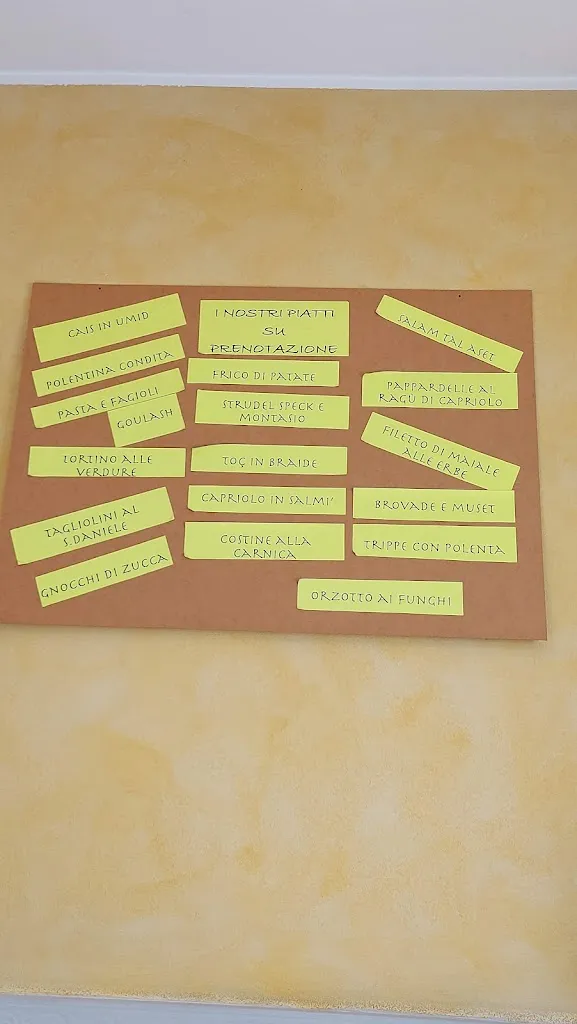 CAIS IN UMID
POLENTINA CONDITA
PASTA E FAGIOLI
GOULASH
TORTINO ALLE
VERDURE
TAGLIOLINI AL
S.DANIELE
GNOCCHI DI ZUCCA
I NOSTRI PIATTI
SU
PRENOTAZIONE
FRICO DI PATATE
STRUDEL SPECK E
MONTASIO
TOÇ IN BRAIDE
CAPRIOLO IN SALMI'
COSTINE ALLA
CARNICA
ORZOTTO AI FUNGHI
SALAM TAL ASET
PAPPARDELLE AL
RAGÙ DI CAPRIOLO
FILETTO DI MAIALE
ALLE ERBE
BROVADE E MUSET
TRIPPE CON POLENTA